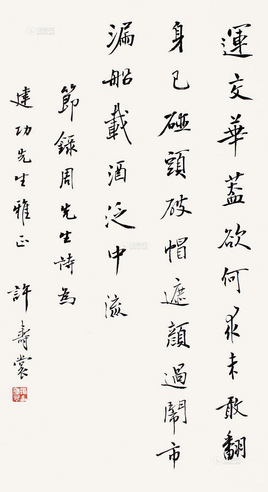 運交華蓋欲何求未敢翻
身已碰頭破帽遮顏過鬧市
漏船載酒泛中流
節錄周先生詩為
建功先生雅正
許壽裳